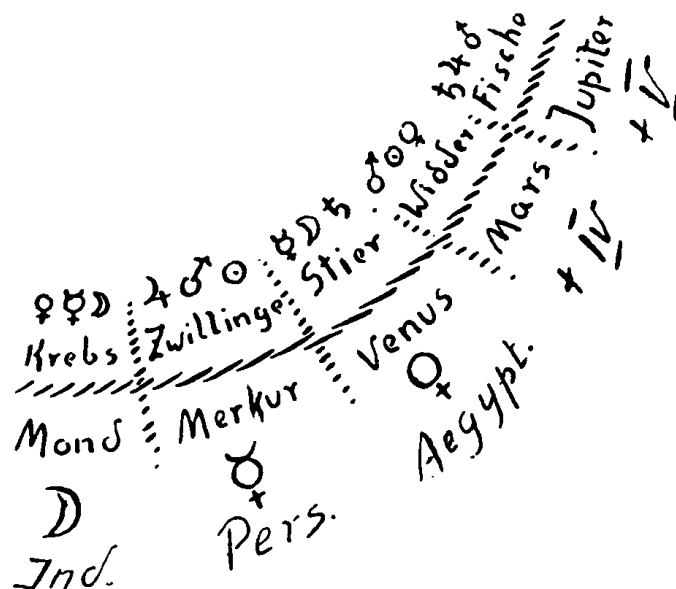 ♀☿☽
Krebs
♃♂☉
Zwillinge
☿☽♄
Stier
♂☉♀
Widder
♄♃♂
Fische
Mond
☽
Ind.
Merkur
☿
Pers.
Venus
♀
Aegypt.
Mars
+ IV
Jupiter
+ V